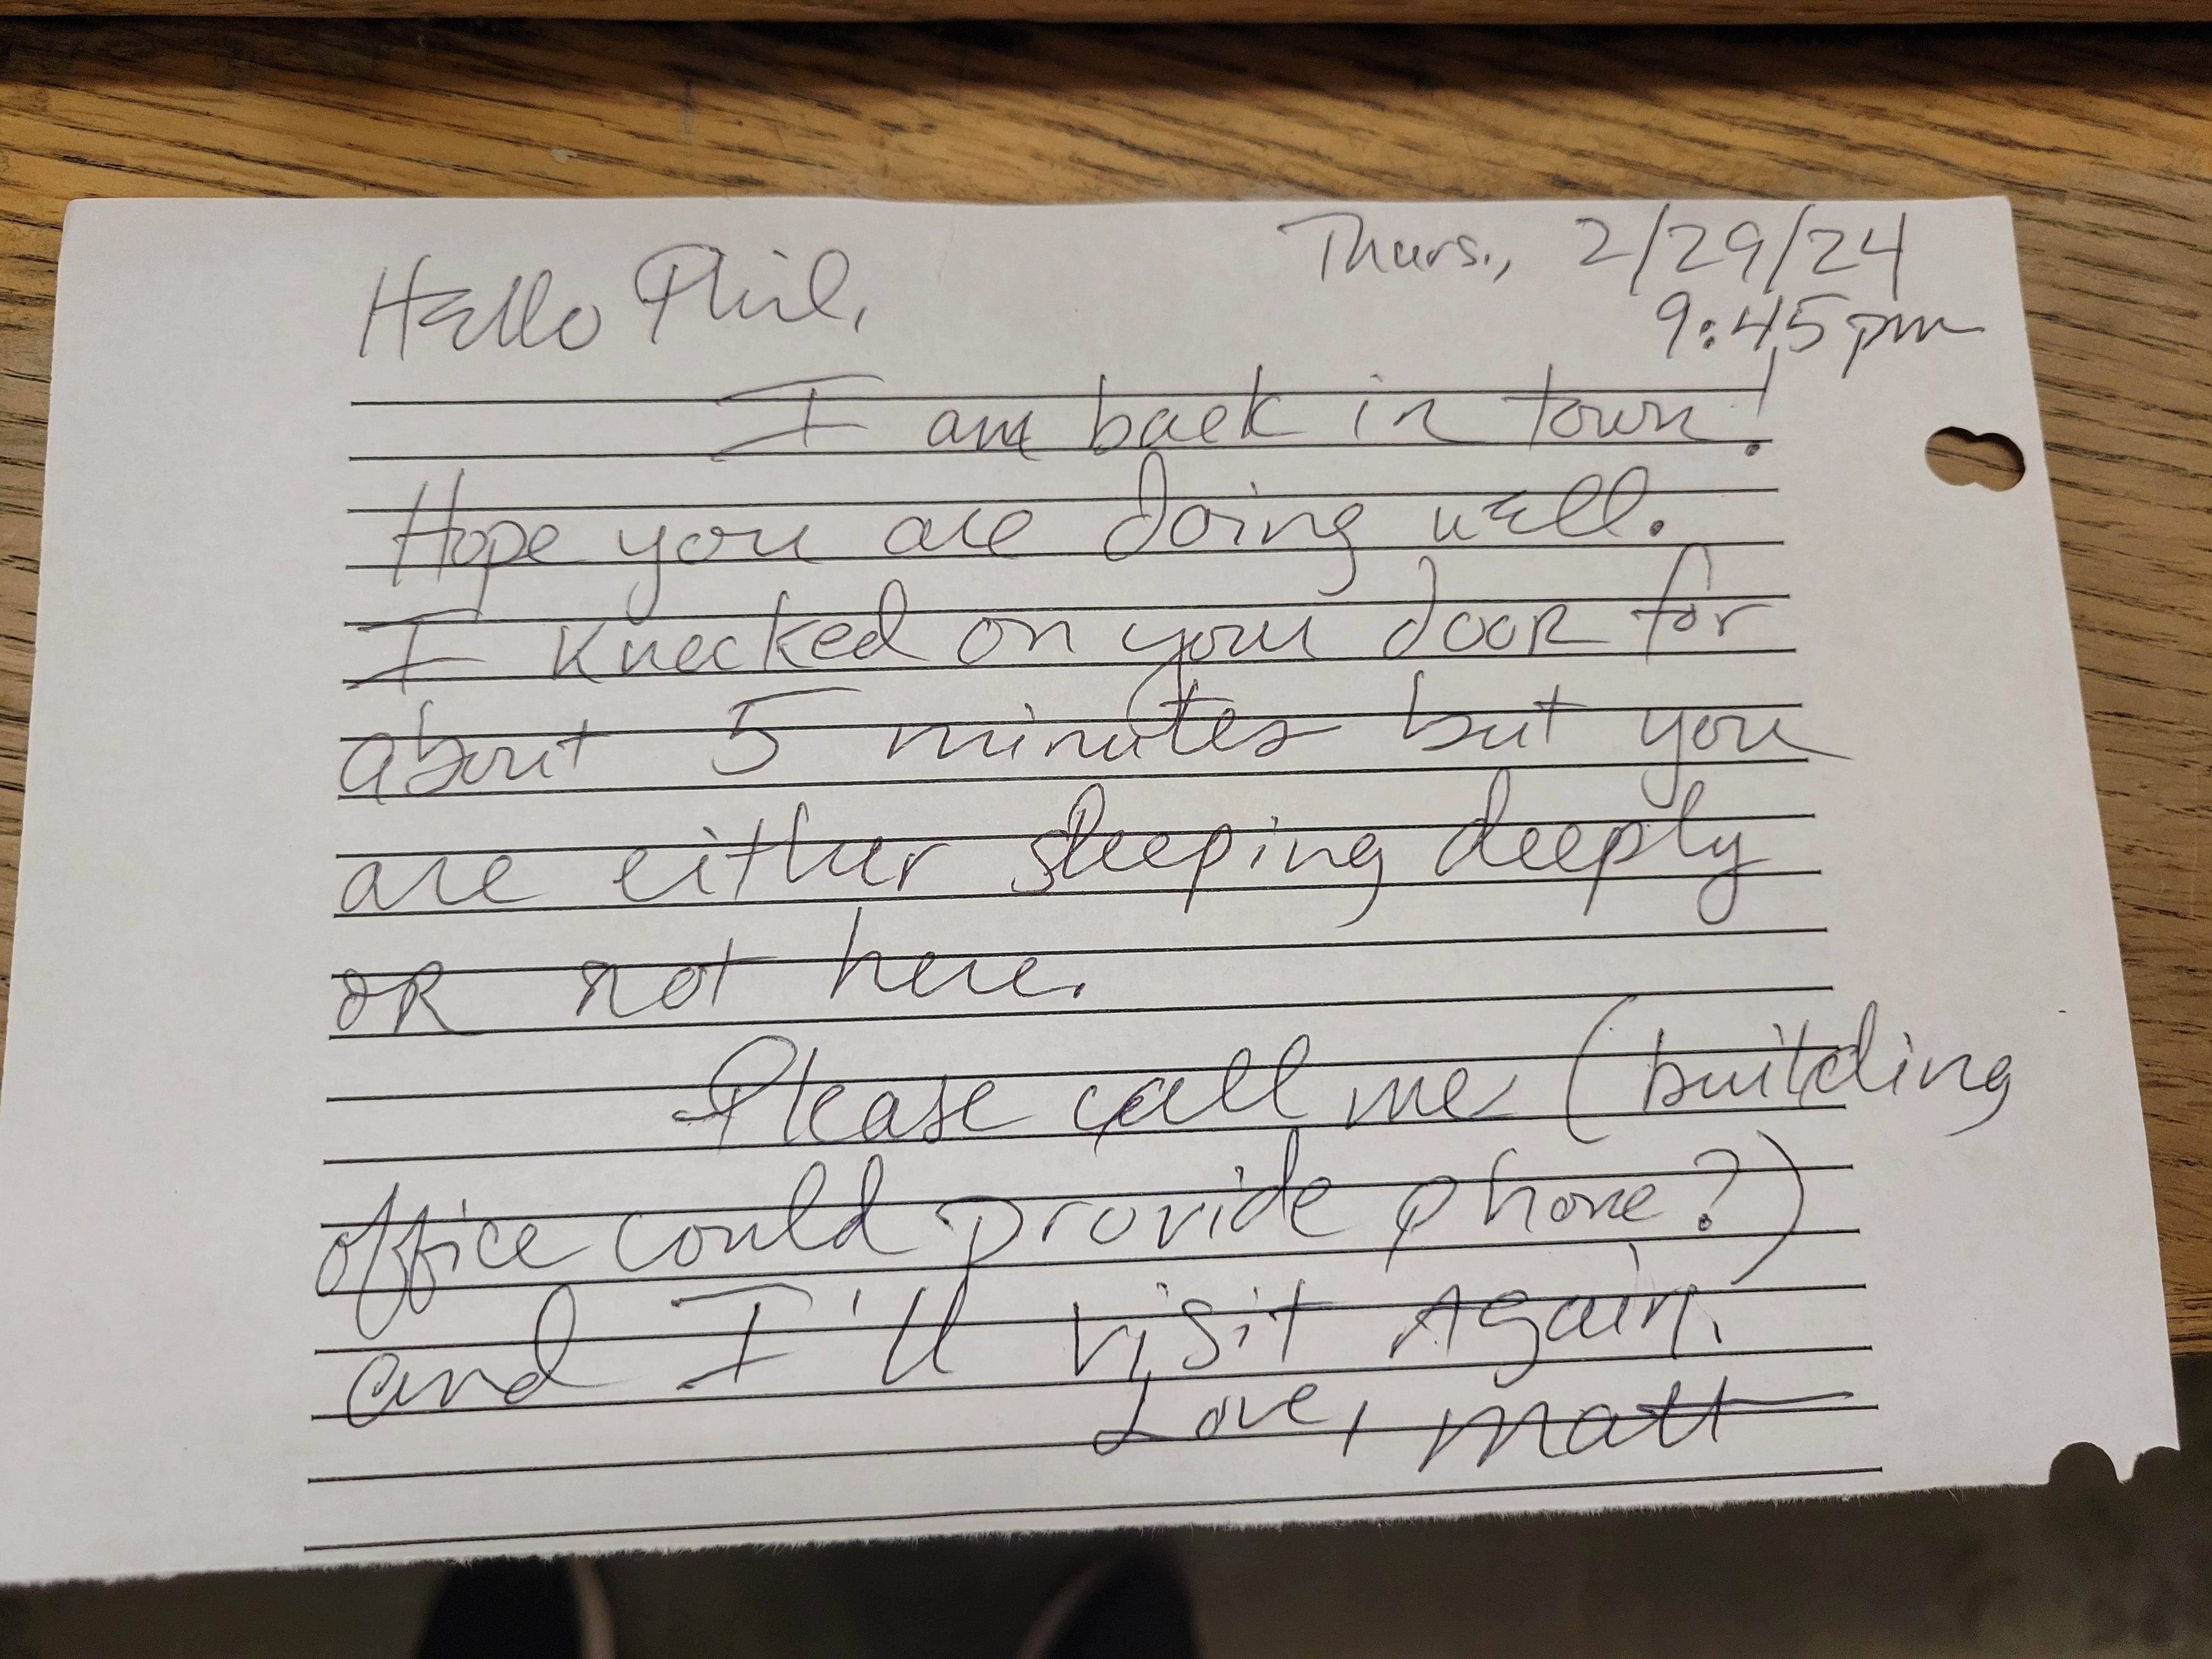 Thurs., 2/29/24
Hello Phil,
9:45pm
I am back in town!
Hope you are doing well.
I knocked on your door for
about 5 minutes but you
are either sleeping deeply
or not here.
Please call me (building
office could provide phone?)
and I'll visit again.
Love, Matt